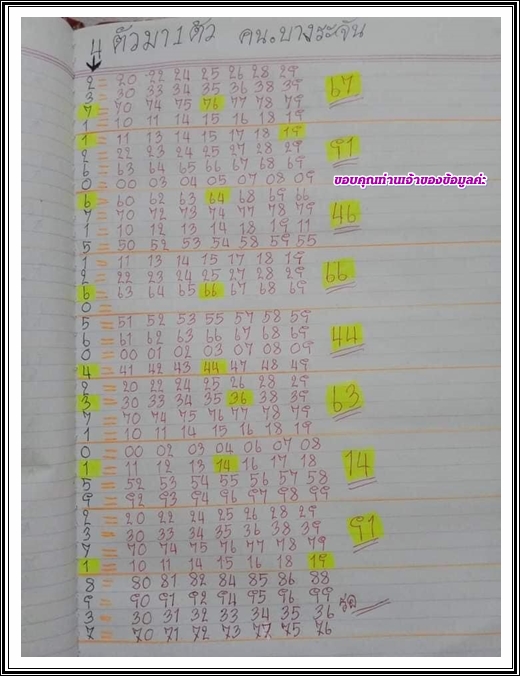 บ ตัวมา 1 ตัว คน.บางระจัน
2 = 20 22 24 25 26 28 29
3 = 30 33 34 35 36 38 39 67
7 = 70 74 75 76 77 78 79
1 = 10 11 14 15 16 18 19
1 = 11 13 14 15 17 18 19
2 = 22 23 24 25 27 28 29 91
6 = 63 64 65 66 67 68 69
0 = 00 03 04 05 07 08 09
ขอบคุณท่านเจ้าของข้อมูลค่ะ
6 = 60 62 63 64 68 69 66
7 = 70 72 73 74 77 78 79 46
1 = 10 12 13 14 18 19 11
5 = 50 52 53 54 58 59 55
1 = 11 13 14 15 17 18 19
2 = 22 23 24 25 27 28 29 66
6 = 63 64 65 66 67 68 69
0 =
5 = 51 52 53 55 57 58 59
6 = 61 62 63 66 67 68 69 44
0 = 00 01 02 03 07 08 09
4 = 41 42 43 44 47 48 49
2 = 20 22 24 25 26 28 29
3 = 30 33 34 35 36 38 39 63
7 = 70 74 75 76 77 78 79
1 = 10 11 14 15 16 18 19
0 = 00 02 03 04 06 07 08
1 = 11 12 13 14 16 17 18 14
5 = 52 53 54 55 56 57 58
9 = 92 93 94 96 97 98 99
2 = 20 22 24 25 26 28 29
3 = 30 33 34 35 36 38 39 91
7 = 70 74 75 76 77 78 79
1 = 10 11 14 15 16 18 19
8 80 81 82 84 85 86 88
9 90 91 92 94 95 96 99
3 30 31 32 33 34 35 36
7 70 71 72 73 77 75 76